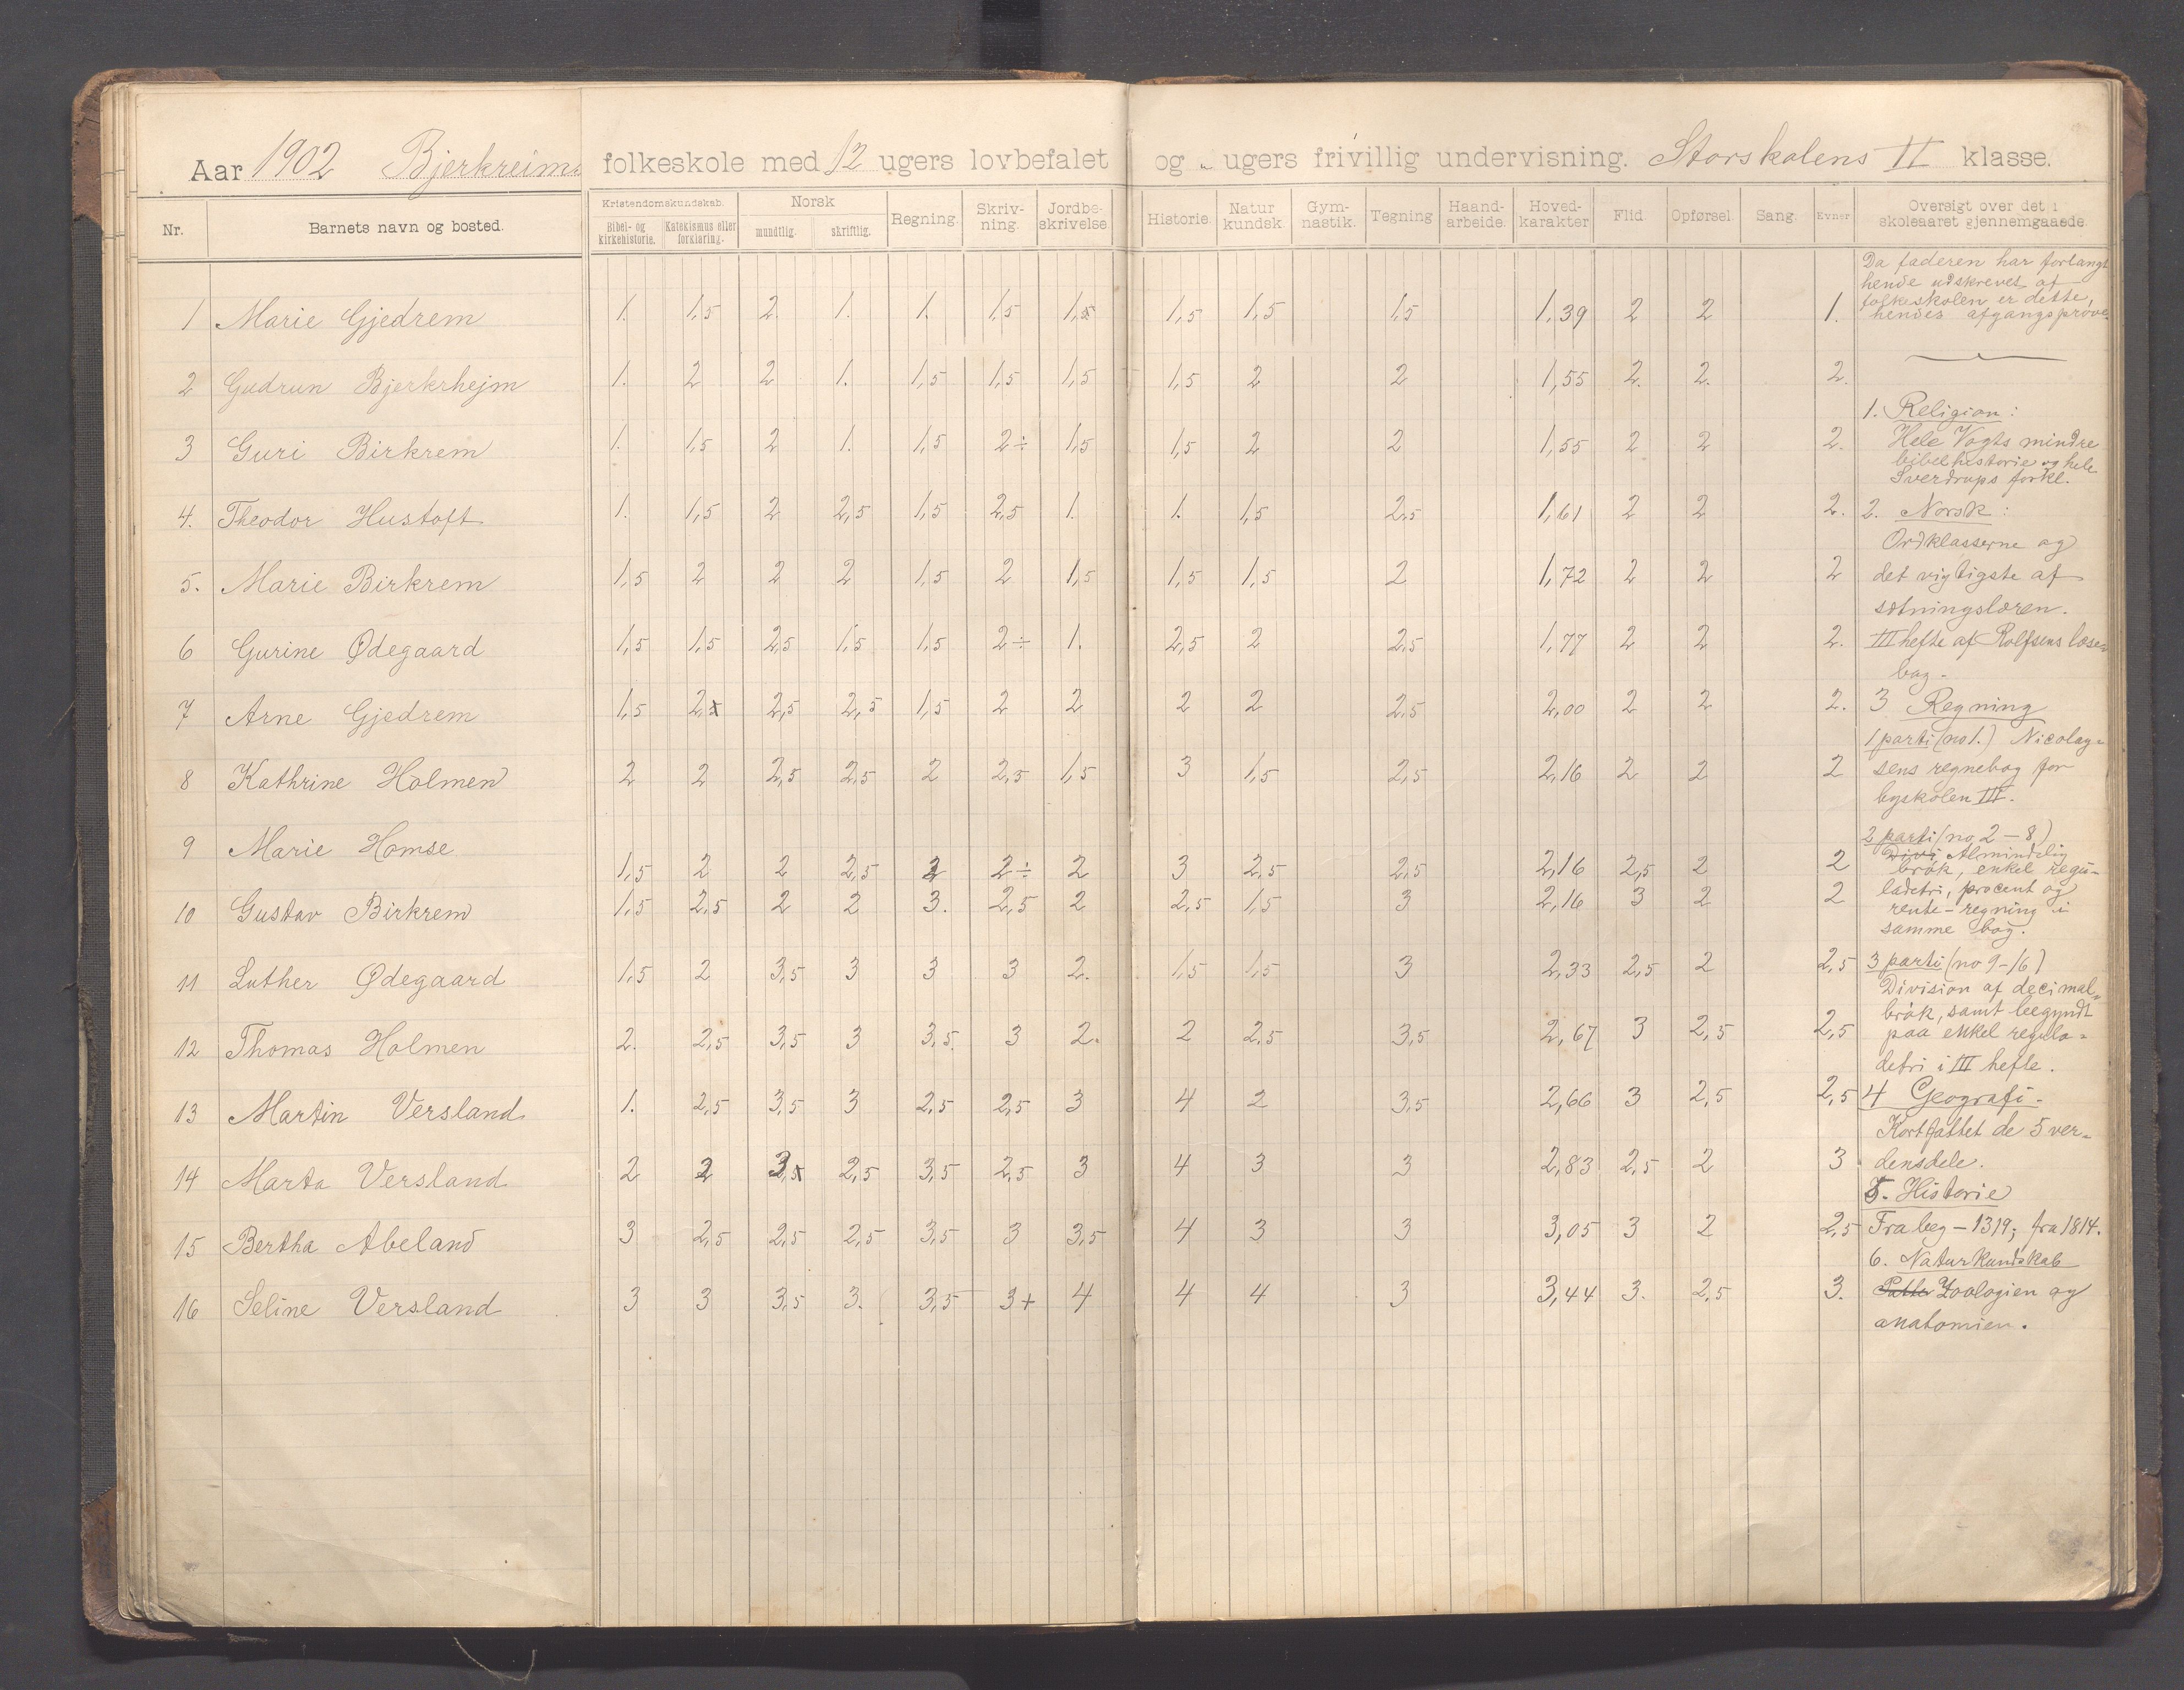 Aar 1902 Bjerkreims folkeskole med 12 ugers lovbefalet og - ugers frivillig undervisning. Storskolens II klasse.
Nr. Barnets navn og bosted. Kristendomskundskab. Bibel- og kirkehistorie. Katekismus eller forklaring. Norsk mundtlig. skriftlig. Regning. Skriv-ning. Jordbe-skrivelse Historie. Natur kundsk. Gym-nastik. Tegning Haand-arbeide. Hoved-karakter Flid. Opførsel. Sang. Evner Oversigt over det i skoleaaret gjennemgaaede.
1 Marie Gjedrem 1. 1,5 2. 1. 1. 1,5 1,5 1,5 1,5 1,5 1,39 2 2 1.
2 Gudrun Bjerkrhejm 1. 2 2 1. 1,5 1,5 1,5 1,5 2 2 1,55 2. 2. 2.
3 Guri Birkrem 1. 1,5 2 1. 1,5 2÷ 1,5 1,5 2 2 1,55 2 2 2.
4. Theodor Hustoft 1. 1,5 2 2,5 1,5 2,5 1. 1. 1,5 2,5 1,61 2 2 2.
5. Marie Birkrem 1,5 2 2 2 1,5 2 1,5 1,5 1,5 2 1,72 2 2 2
6 Gurine Ødegaard 1,5 1,5 2,5 1,5 1,5 2÷ 1. 2,5 2 2,5 1,77 2 2 2.
7 Arne Gjedrem 1,5 2,5 2,5 2,5 1,5 2 2 2 2 2,5 2,00 2 2 2.
8 Kathrine Holmen 2 2 2,5 2,5 2 2,5 1,5 3 1,5 2,5 2,16 2 2 2
9 Marie Homse 1,5 2 2 2,5 2 2÷ 2 3 2,5 2,5 2,16 2,5 2 2
10 Gustav Birkrem 1,5 2,5 2 2 3. 2,5 2 2,5 1,5 3 2,16 3 2 2
11 Luther Ødegaard 1,5 2 3,5 3 3 3 2. 1,5 1,5 3 2,33 2,5 2 2,5
12 Thomas Holmen 2. 2,5 3,5 3 3,5. 3 2. 2 2,5 3,5 2,67 3 2,5 2,5
13 Martin Versland 1. 2,5 3,5 3 2,5 2,5 3 4 2 3,5 2,66 3 2,5 2,5
14 Marta Versland 2 2 3,5 2,5 3,5 2,5 3 4 3 3 2,83 2,5 2 3
15 Bertha Abeland 3 2,5 2,5 2,5 3,5 3 3,5 4 3 3 3,05 3 2 2,5
16 Seline Versland 3 3 3,5 3. 3,5 3+ 4 4 4 3 3,44 3. 2,5 3.
Da faderen har forlangt
hende udskrevet af
folkeskolen er dette,
hendes afgangsprøve.
1. Religion:
Hele Vogts mindre
bibelhistorie og hele
Sverdrups forkl.
2. Norsk:
Ordklasserne og
det vigtigste af
sætningslæren.
III hefte af Rolfsens læse-
bog.
3 Regning
1 parti (no 1.) Nicolay-
sens regnebog for
byskolen III.
2 parti (no 2-8)
Divi Almindelig
brøk, enkel regu-
ladetri, procent og
rente-regning i
samme bog.
3 parti (no 9-16)
Division af decimal-
brøk, samt begyndt
paa enkel regula-
detri i III hefte.
4 Geografi.
Kortfattet de 5 ver-
densdele.
5. Historie
Fra beg - 1319; fra 1814.
6. Naturkundskab
Zoologien og
anatomien.